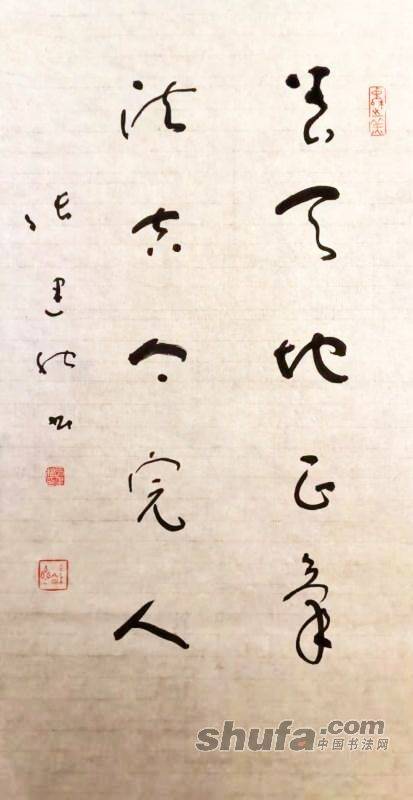 養天地正氣
法古今完人
shufa.com
中国书法网